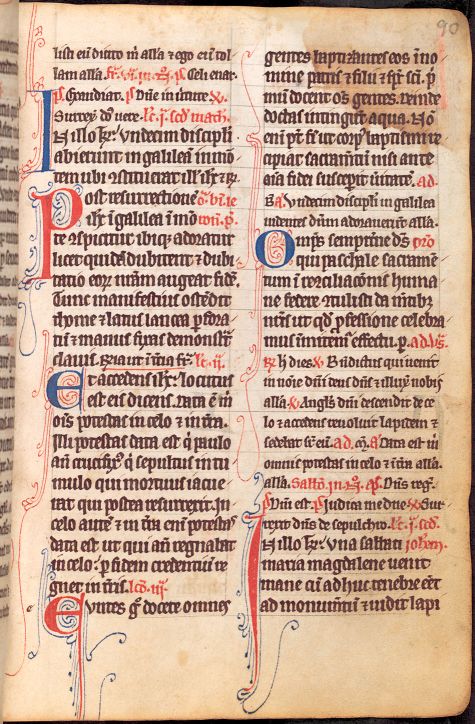 90
listi eū dicito m̄ alla ⁊ ego eū tol
lam alla Celi enar.
ps. Exaudiat. ps Dn̄e in v̄tute
Surrex̄ dn̄s vere. sc̄d mach.
In illo t̄pr. Vndecim discipli
abierunt in galileā in mō
tem ubi ɔstituerat ill' ih̄c ⁊ r̄.
Post resurrectionē
ih̄c ī galilea ī mō
te ɔspicitur ibiq; adoratur
licet quidā dubitent ⁊ dubi
tatio eoꝝ nr̄am augeat fidē.
Tunc manifestius ostēdit
thome ⁊ latus lancea ꝑfora
tū ⁊ manus fixas demonstr̄
clauis.
Et accedens ih̄c locutus
est eis dicens. Data ē m̄
om̄s potestas in celo ⁊ in t̄ra.
Illi potestas data est q̄ paulo
an̄ crucifix' q̄ sepultus in tu
mulo qui mortuus iacue
rat qui postea resurrexit. In
celo autē ⁊ in t̄ra ei potestas
data est ut qui an̄ regnabat
in celo. ꝑ fidem credentiū re
gnet in t̄ris. lc̄o. iij.
Euntes g̊ docete omnes
gentes baptizantes eos ī no
mine patris ⁊ filii ⁊ sp̄s sc̄i. p̄
mū docent om̄s gentes. Deinde
doctas intingūt aqua. Nō
eni pt̄ fi ut corp' baptismi re
cipiat sacram̄tū nisi ante
an̄a fidei susceperit ūitatē. ad.
Bn̄. Vndecim discipli in galilea
uidentes dn̄m adorauerūt alla.
Omp̄s sempitne ds̄
qui paschale sacramē
tum ī reɔciliacōnis huma
ne federe ɔtulisti da mtib'
nr̄is ut qd' ꝓfessione celebra
mus imitem' effectu. ꝑ.
Hec dies. Bn̄dictus qui uenit
in noīe dn̄i deus dn̄s ⁊ illux̄ nobis
alla. Angl's dn̄i descendit de ce
lo ⁊ accedens reuoluit lapidem ⁊
sedebat sr̄ eū Data est m̄
omnis potestas in celo ⁊ ī t̄ra alla.
alla. Dn̄s reḡ.
ps Dn̄i est. ps Iudica me dn̄e. Sur
rexit dn̄s de sepulchro. sc̄d.
In illo t̄pr. Vna sabbati iohem.
maria magdalene uenit
mane cū adhuc tenebre eēt
ad monum̄tū ⁊ uidit lapi